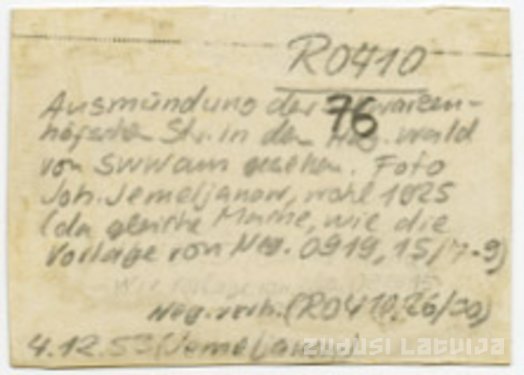 R0410
76
Ausmündung der
höfschen Str. in den wald
von SWW aus gesehen. Foto
Joh. Jemeljanow, wohl 1925
(da gleiche Marke, wie die
Vorlage von Neg. 0919, 15/7-9)
Neg. vorh. (R0410, 26/30)
4.12.53 (Jemeljanow)
zudusi Latvija